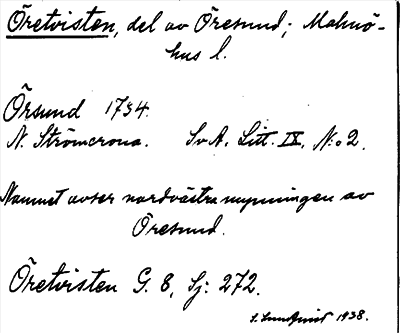 Öretvisten, del av Öresund; Malmö-
hus l.
Örsund 1734.
N. Strömcrona. SvA. Litt. IX, N:o 2.
Namnet avser nordvästra mynningen av
Öresund.
Öretvisten G. 8, Sj: 272.
1938.